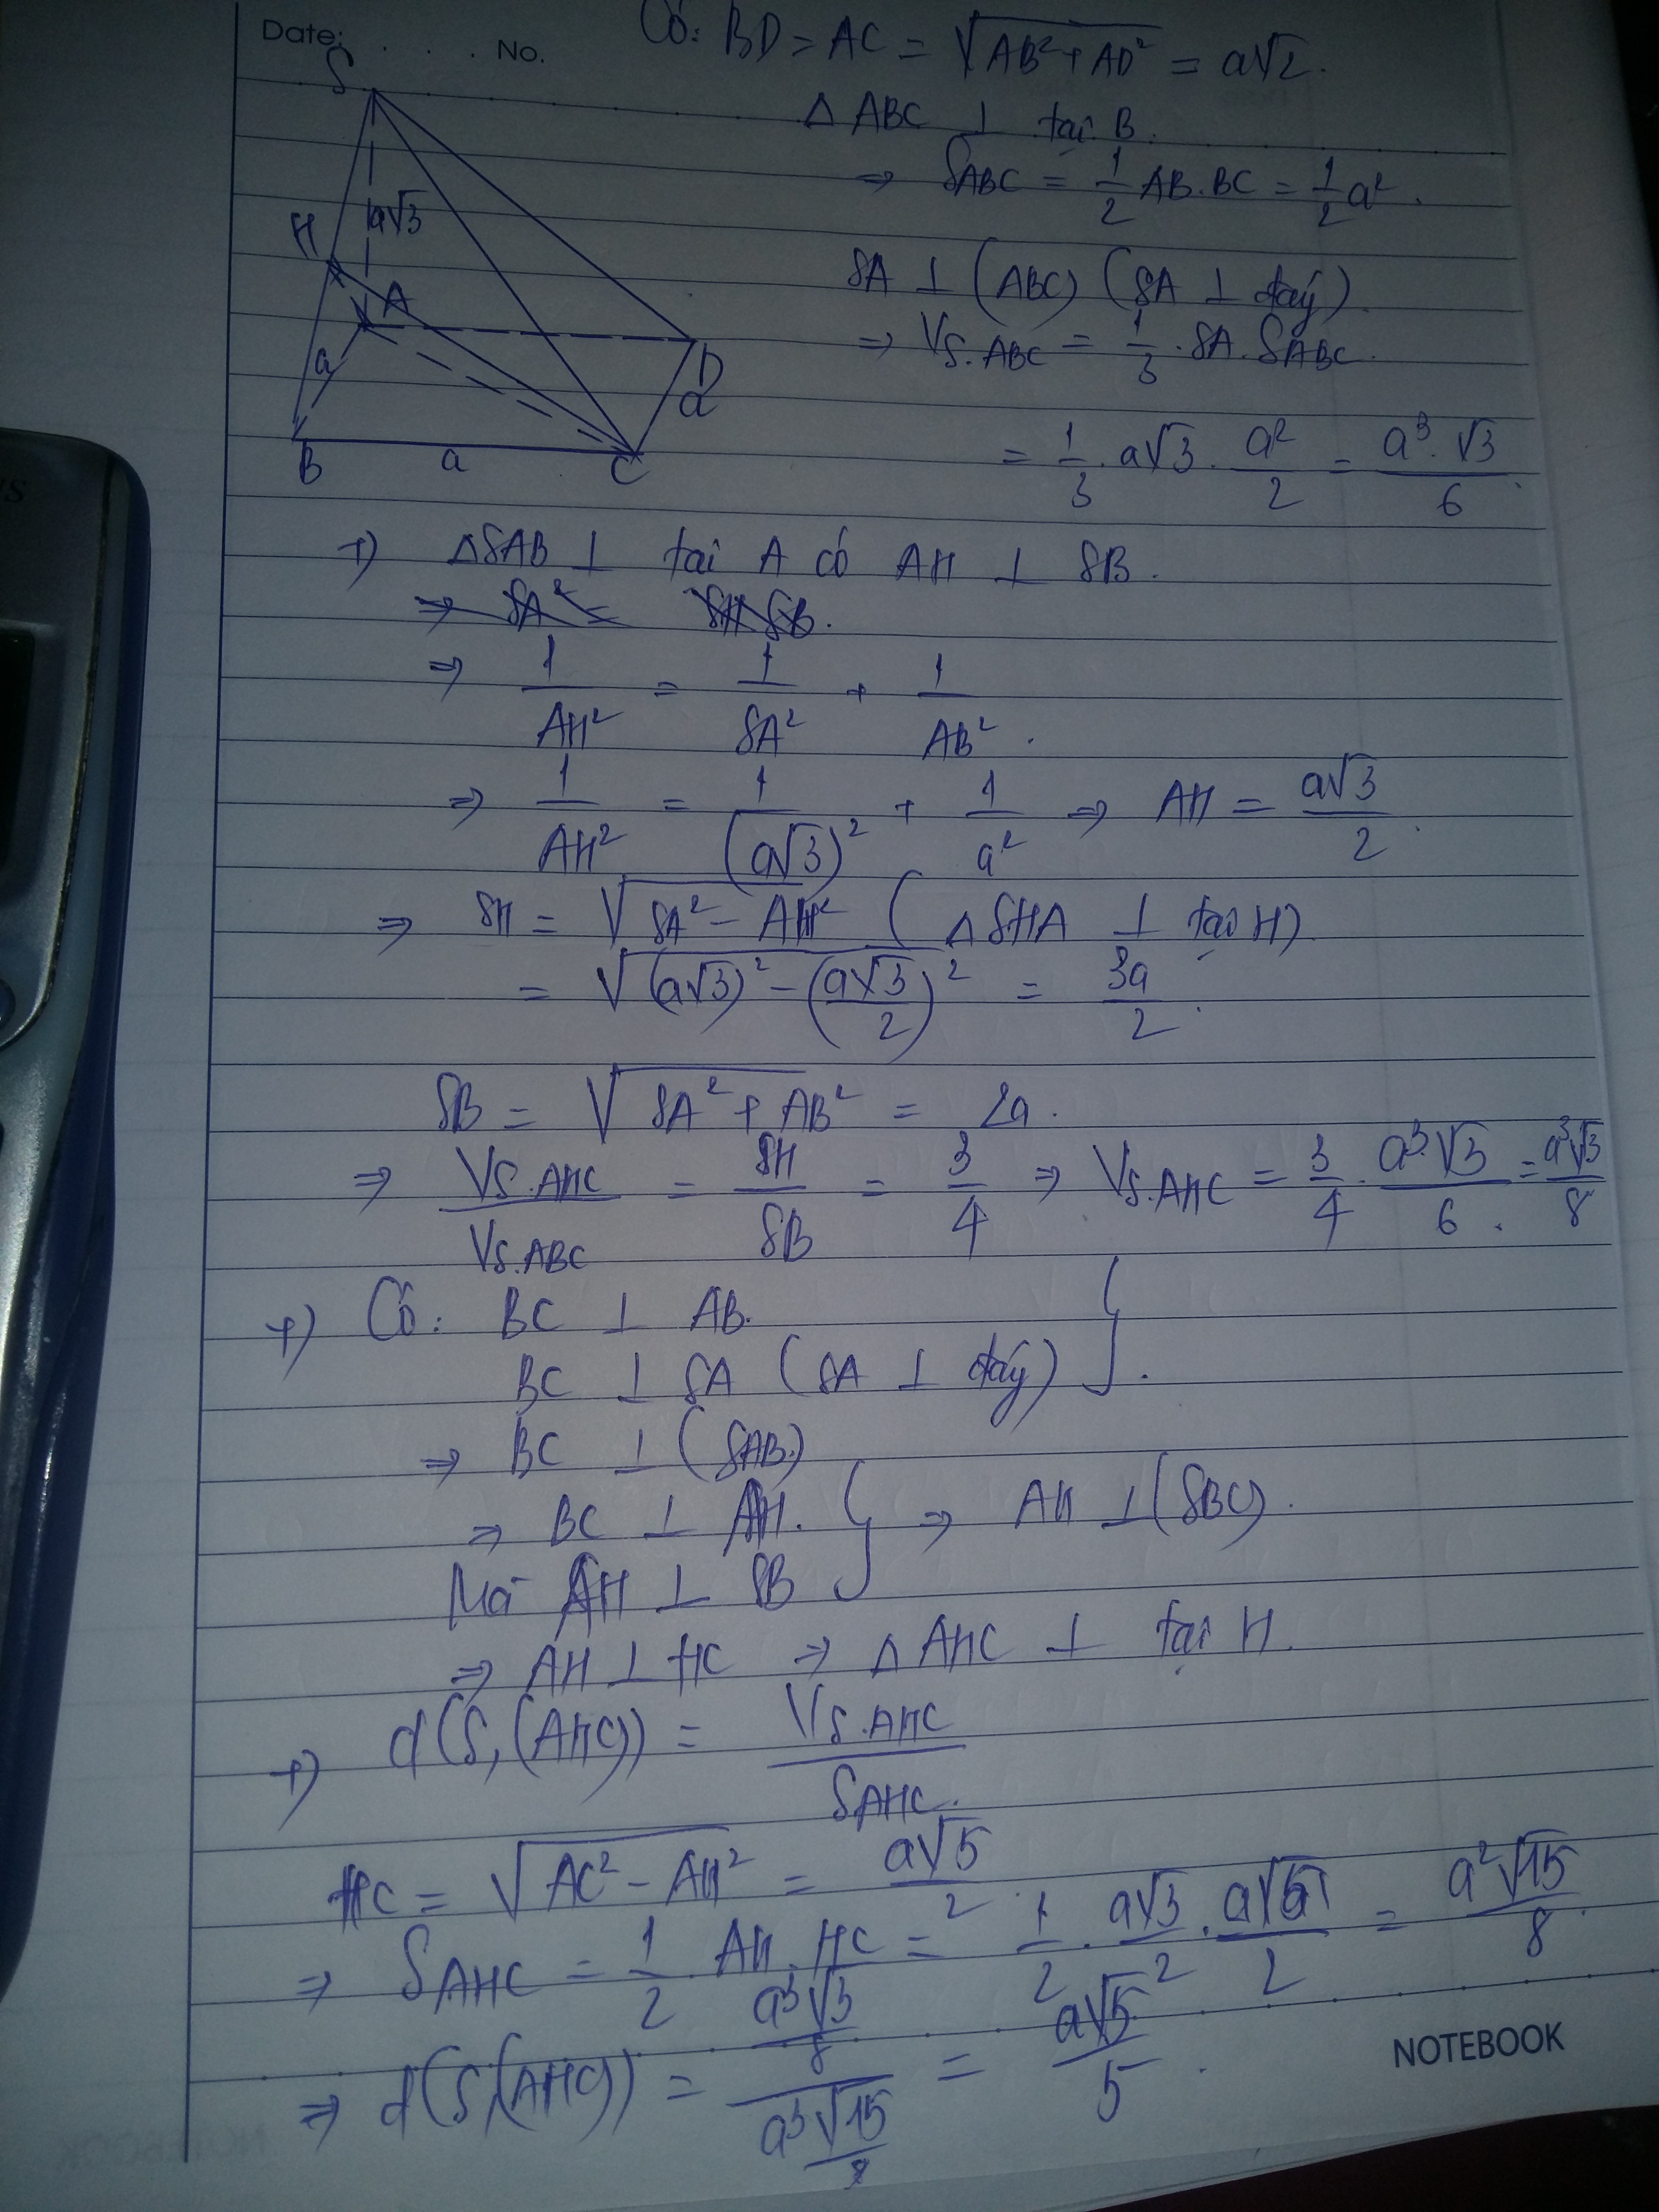 Date: . . . . No.
Có: BD = AC = √(AB² + AD²) = a√2.
Δ ABC ⊥ tại B.
⇒ SABC = 1/2 AB.BC = 1/2 a².
SA ⊥ (ABC) (SA ⊥ đáy)
⇒ VS.ABC = 1/3 . SA. SABC.
= 1/3 . a√3 . a²/2 = a³.√3/6.
S
H
a√3
A
a
D
a
B
a
C
+) ΔSAB ⊥ tại A có AH ⊥ SB.
⇒ SA² = SH SB.
⇒ 1/AH² = 1/SA² + 1/AB².
⇒ 1/AH² = 1/(a√3)² + 1/a² ⇒ AH = a√3/2.
⇒ SH = √(SA² - AH²) (ΔSHA ⊥ tại H)
= √((a√3)² - (a√3/2)²) = 3a/2.
SB = √(SA² + AB²) = 2a.
⇒ VS.AHC/VS.ABC = SH/SB = 3/4 ⇒ VS.AHC = 3/4 . a³.√3/6. = a³√3/8
+) Có: BC ⊥ AB.
BC ⊥ SA (SA ⊥ đáy) }.
⇒ BC ⊥ (SAB)
⇒ BC ⊥ AH. } ⇒ AH ⊥ (SBC).
Mà AH ⊥ SB
⇒ AH ⊥ HC ⇒ Δ AHC ⊥ tại H.
+) d(S,(AHC)) = VS.AHC/SAHC.
HC = √(AC² - AH²) = a√5/2
⇒ SAHC = 1/2 . AH. HC = 1/2 . a√3/2 . a√5/2 = a²√15/8.
⇒ d(S,(AHC)) = (a³√3/8)/(a³√15/8) = a√5/5.
NOTEBOOK